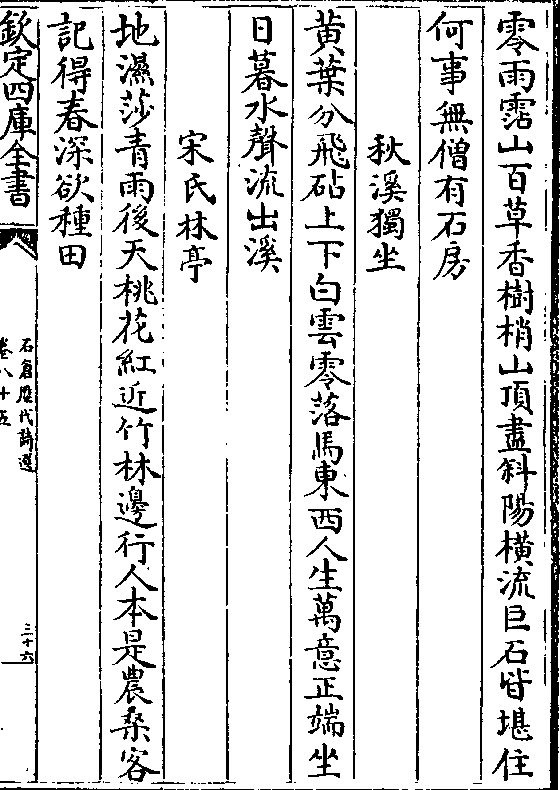 零雨霑山百草香樹梢山頂盡斜陽橫流巨石皆堪住
何事無僧有石房
秋溪獨坐
黄葉分飛砧上下白雲零落馬東西人生萬意正端坐
日暮水聲流出溪
宋氏林亭
地濕莎青雨後天桃花紅近竹林邊行人本是農桑客
記得春深欲種田
欽定四庫全書
石倉歷代詩選
卷八十五
三十六